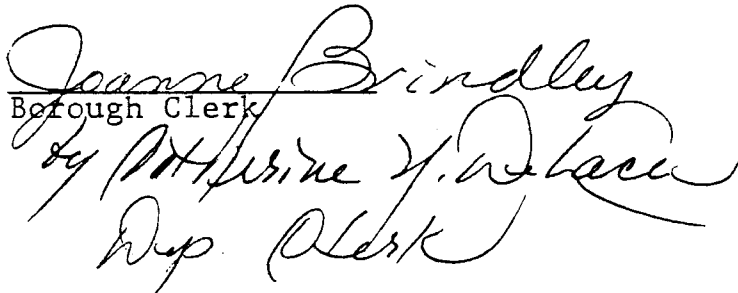 Joanne Brindley
Borough Clerk
by Catherine
Dep Clerk